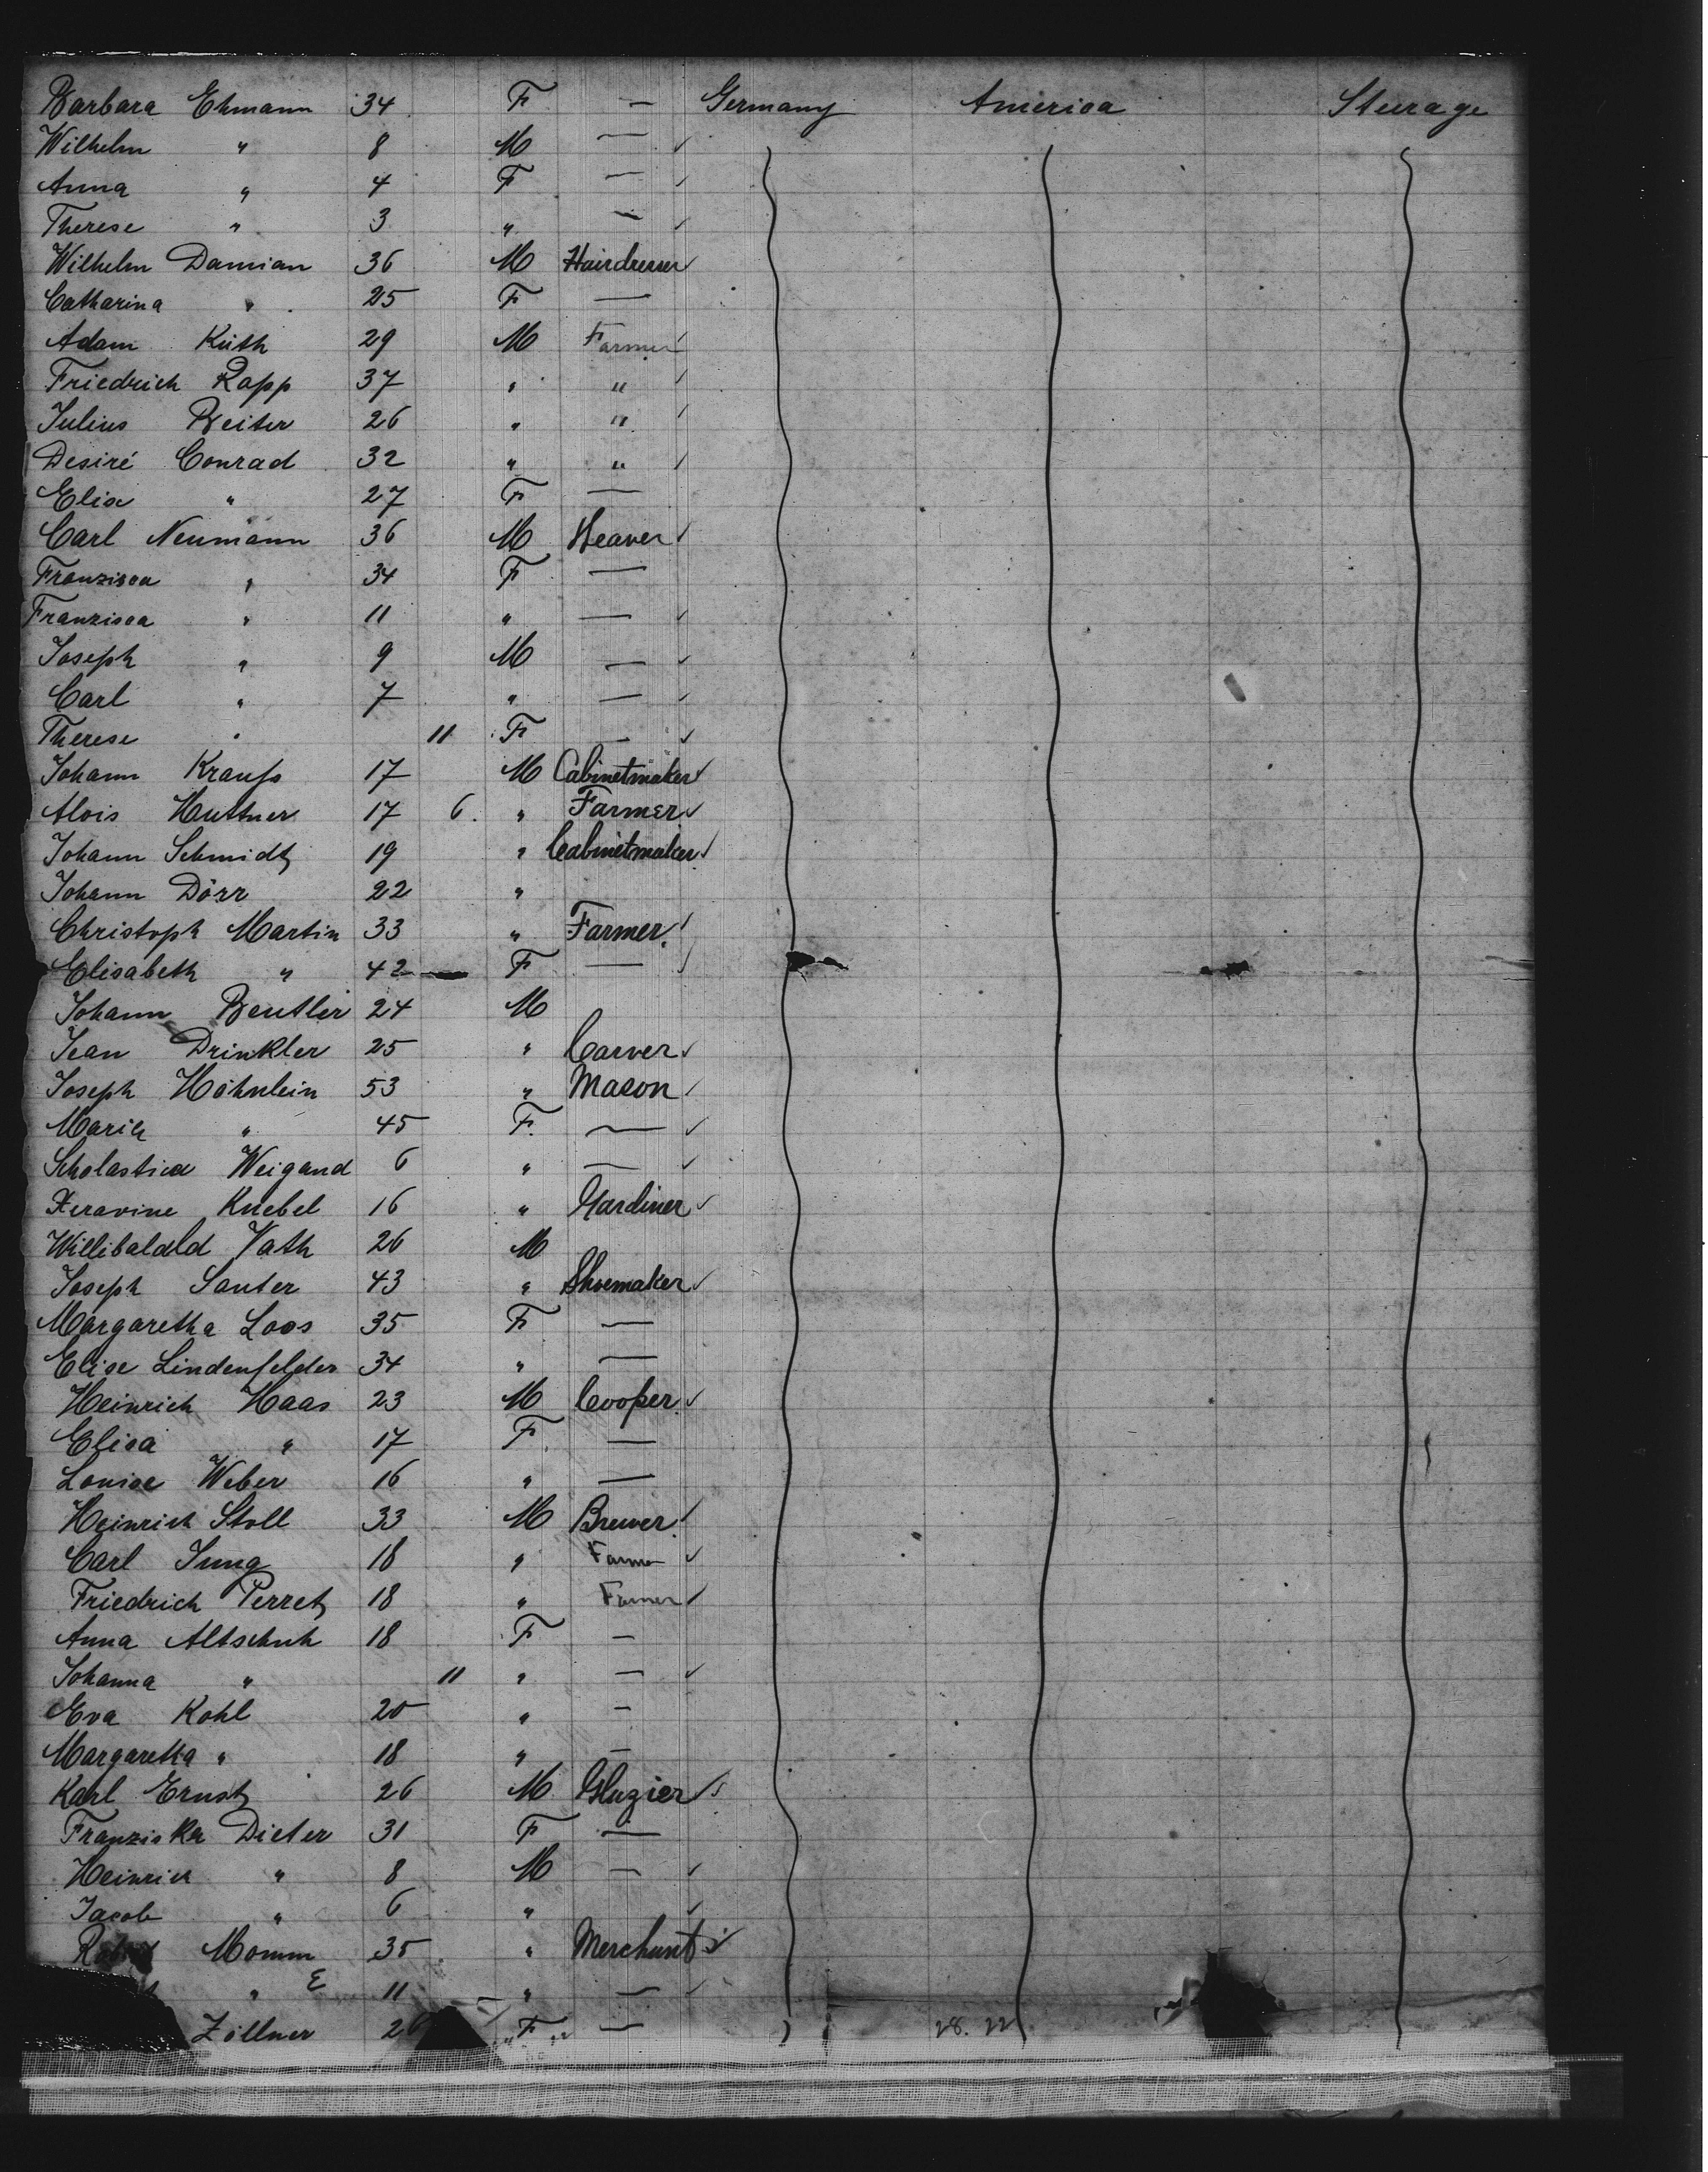 Barbara Ehmann 34 F — Germany America Steerage
Wilhelm " 8 M —
Anna " 4 F —
Therese " 3 " —
Wilhelm Damian 36 M Hairdresser
Catharina " 25 F —
Adam Küth 29 M Farmer
Friedrich Rapp 37 " "
Julius Beiter 26 " "
Desiré Conrad 32 " "
Elisa " 27 F —
Carl Neumann 36 M Weaver
Franzisca " 34 F —
Franzisca " 11 " —
Joseph " 9 M —
Carl " 7 " —
Therese " 11 F —
Johann Krauß 17 M Cabinetmaker
Alois Huttner 17 6 " Farmer
Johann Schmidt 19 " Cabinetmaker
Johann Dörr 22 "
Christoph Martin 33 " Farmer
Elisabeth " 42 — F —
Johann Beutler 24 M
Jean Drinkler 25 " Carver
Joseph Höhnlein 53 " Mason
Marie " 45 F. —
Scholastica Weigand 6 " —
Xeravine Knebel 16 " Gardiner
Willibalald Vath 26 M
Joseph Sauter 43 " Shoemaker
Margaretha Loos 35 F —
Elise Lindenfelder 34 " —
Heinrich Haas 23 M Cooper
Elisa " 17 F —
Louise Weber 16 " —
Heinrich Stoll 33 M Brewer
Carl Jung 18 " Farmer
Friedrich Perret 18 " Farmer
Anna Altschuh 18 F —
Johanna " 11 " —
Eva Kohl 20 " —
Margaretha " 18 " —
Karl Ernst 26 M Glazier
Franziska Dieter 31 F —
Heinrich " 8 M —
Jacob " 6 "
Momm 35 " Merchant
" E 11 " —
Zöllner 26 F — 28. 22